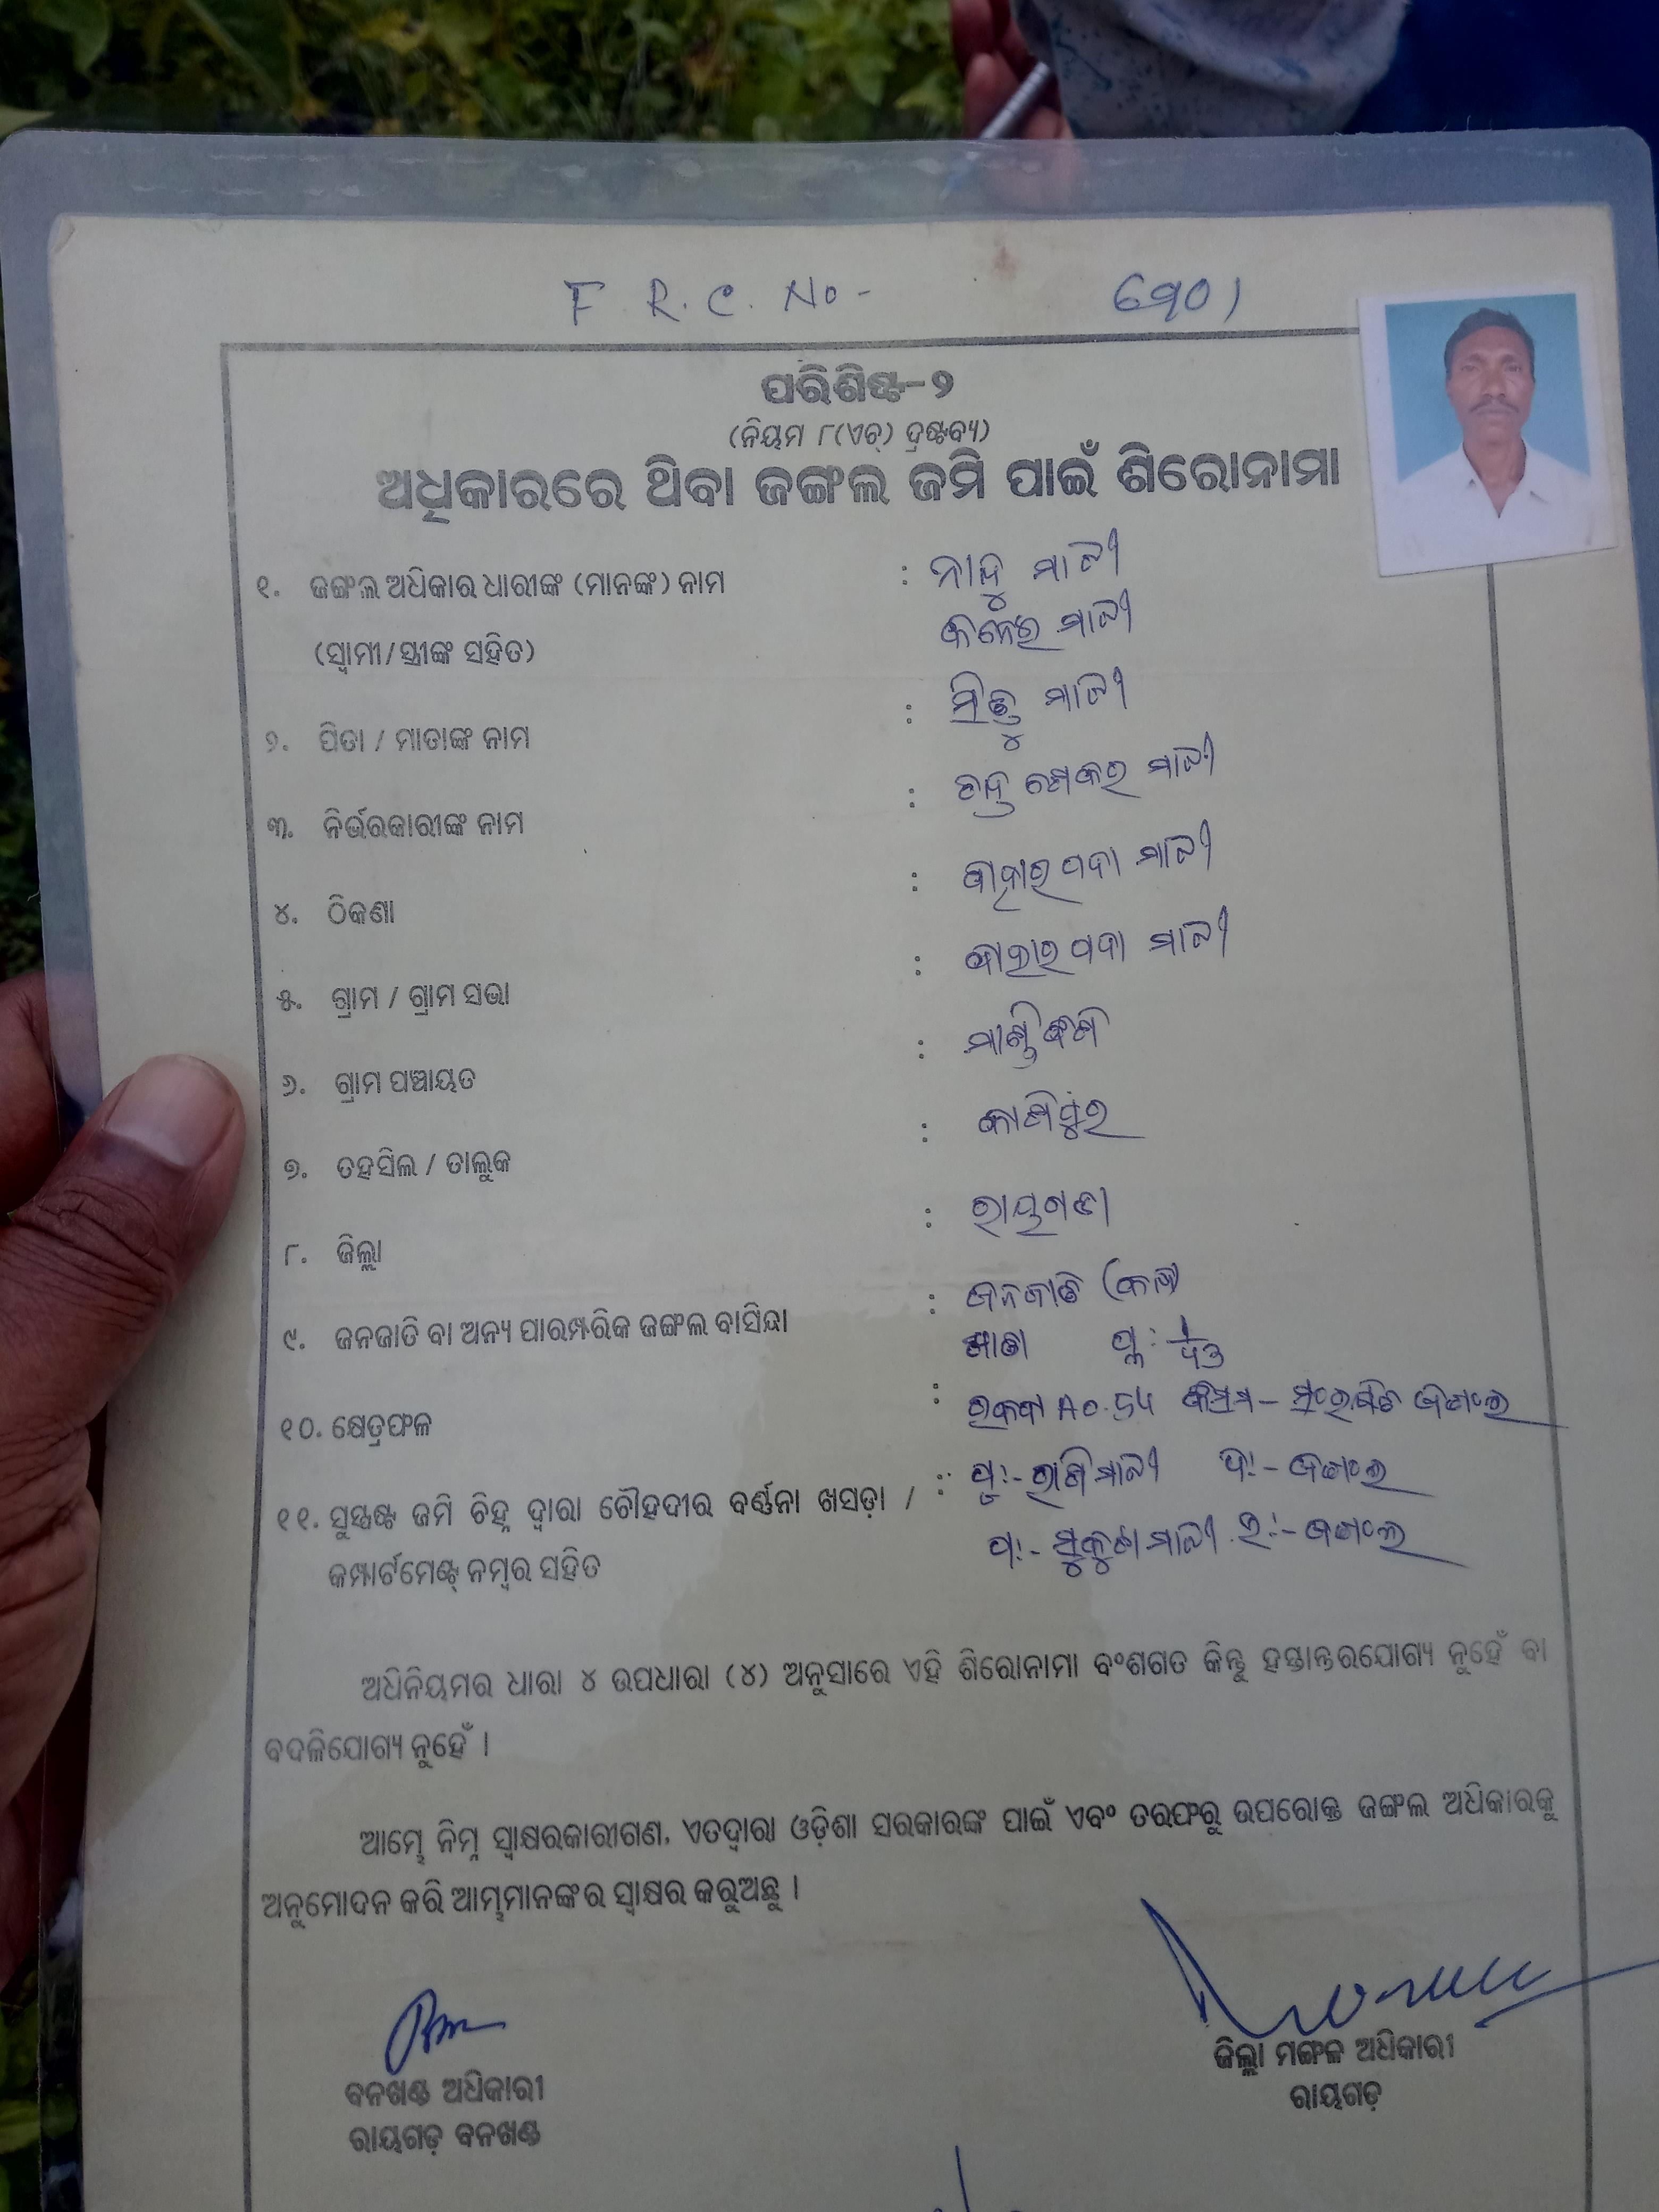 F R.C. No - ୬୩୦୨
ପରିଶିଷ୍ଟ-୨
(ନିୟମ ୮(ଏଚ୍) ଦ୍ରଷ୍ଟବ୍ୟ)
ଅଧିକାରରେ ଥିବା ଜଙ୍ଗଲ ଜମି ପାଇଁ ଶିରୋନାମା
୧. ଜଙ୍ଗଲ ଅଧିକାର ଧାରୀଙ୍କ (ମାନଙ୍କ) ନାମ : ମାଝୀ
(ସ୍ୱାମୀ/ସ୍ତ୍ରୀଙ୍କ ସହିତ) ମାଝୀ
୨. ପିତା / ମାତାଙ୍କ ନାମ : ମାଝୀ
୩. ନିର୍ଭରକାରୀଙ୍କ ନାମ : ମାଝୀ
୪. ଠିକଣା :
୫. ଗ୍ରାମ / ଗ୍ରାମ ସଭା :
୬. ଗ୍ରାମ ପଞ୍ଚାୟତ :
୭. ତହସିଲ / ତାଲୁକ : କାଶିପୁର
୮. ଜିଲ୍ଲା : ରାୟଗଡା
୯. ଜନଜାତି ବା ଅନ୍ୟ ପାରମ୍ପରିକ ଜଙ୍ଗଲ ବାସିନ୍ଦା : ଜନଜାତି
ଖାତା ପ୍ଲ:
୧୦. କ୍ଷେତ୍ରଫଳ : ରକବା A0.54 କିସମ - ସଂରକ୍ଷିତ ଜଙ୍ଗଲ
୧୧. ସୁସ୍ପଷ୍ଟ ଜମି ଚିହ୍ନ ଦ୍ୱାରା ଚୌହଦୀର ବର୍ଣ୍ଣନା ଖସଡ଼ା / : ପୂ:- ମାଝୀ ଦ:- ଜଙ୍ଗଲ
କମ୍ପାର୍ଟମେଣ୍ଟ୍ ନମ୍ବର ସହିତ ପ:- ମାଝୀ ଉ:- ଜଙ୍ଗଲ
ଅଧିନିୟମର ଧାରା ୪ ଉପଧାରା (୪) ଅନୁସାରେ ଏହି ଶିରୋନାମା ବଂଶଗତ କିନ୍ତୁ ହସ୍ତାନ୍ତରଯୋଗ୍ୟ ନୁହେଁ ବା
ବଦଳିଯୋଗ୍ୟ ନୁହେଁ ।
ଆମ୍ଭେ ନିମ୍ନ ସ୍ୱାକ୍ଷରକାରୀଗଣ, ଏତଦ୍ୱାରା ଓଡ଼ିଶା ସରକାରଙ୍କ ପାଇଁ ଏବଂ ତରଫରୁ ଉପରୋକ୍ତ ଜଙ୍ଗଲ ଅଧିକାରକୁ
ଅନୁମୋଦନ କରି ଆମ୍ଭମାନଙ୍କର ସ୍ୱାକ୍ଷର କରୁଅଛୁ ।
ଜିଲ୍ଲା ମଙ୍ଗଳ ଅଧିକାରୀ
ରାୟଗଡ଼
ବନଖଣ୍ଡ ଅଧିକାରୀ
ରାୟଗଡ଼ ବନଖଣ୍ଡ